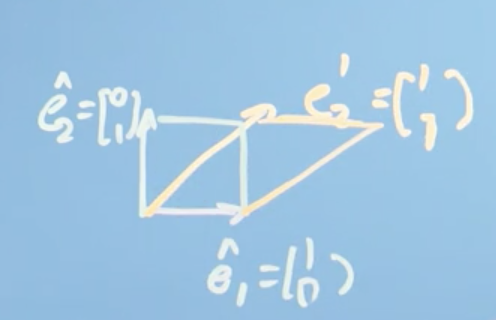 ê₂=[0 1] e₂'=(1 1)
ê₁=(1 0)